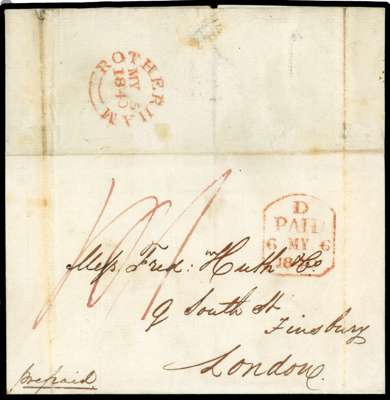 ROTHERHAM
MY 5
1840
D
PAID
6 MY 6
18
Mess. Fred: Huth & Co
9 South St
Finsbury
London.
prepaid